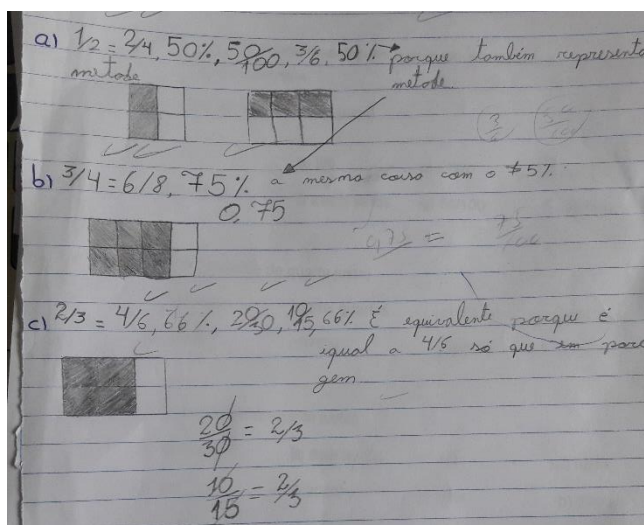 a) 1/2 = 2/4, 50%, 50/100, 3/6, 50% → porque também representa
metade
metade.
b) 3/4 = 6/8, 75% a mesma coisa com o 75%.
0,75
75/100
c) 2/3 = 4/6, 66%, 20/30, 10/15, 66% É equivalente porque é
igual a 4/6 só que em porce
gem
20/30 = 2/3
10/15 = 2/3